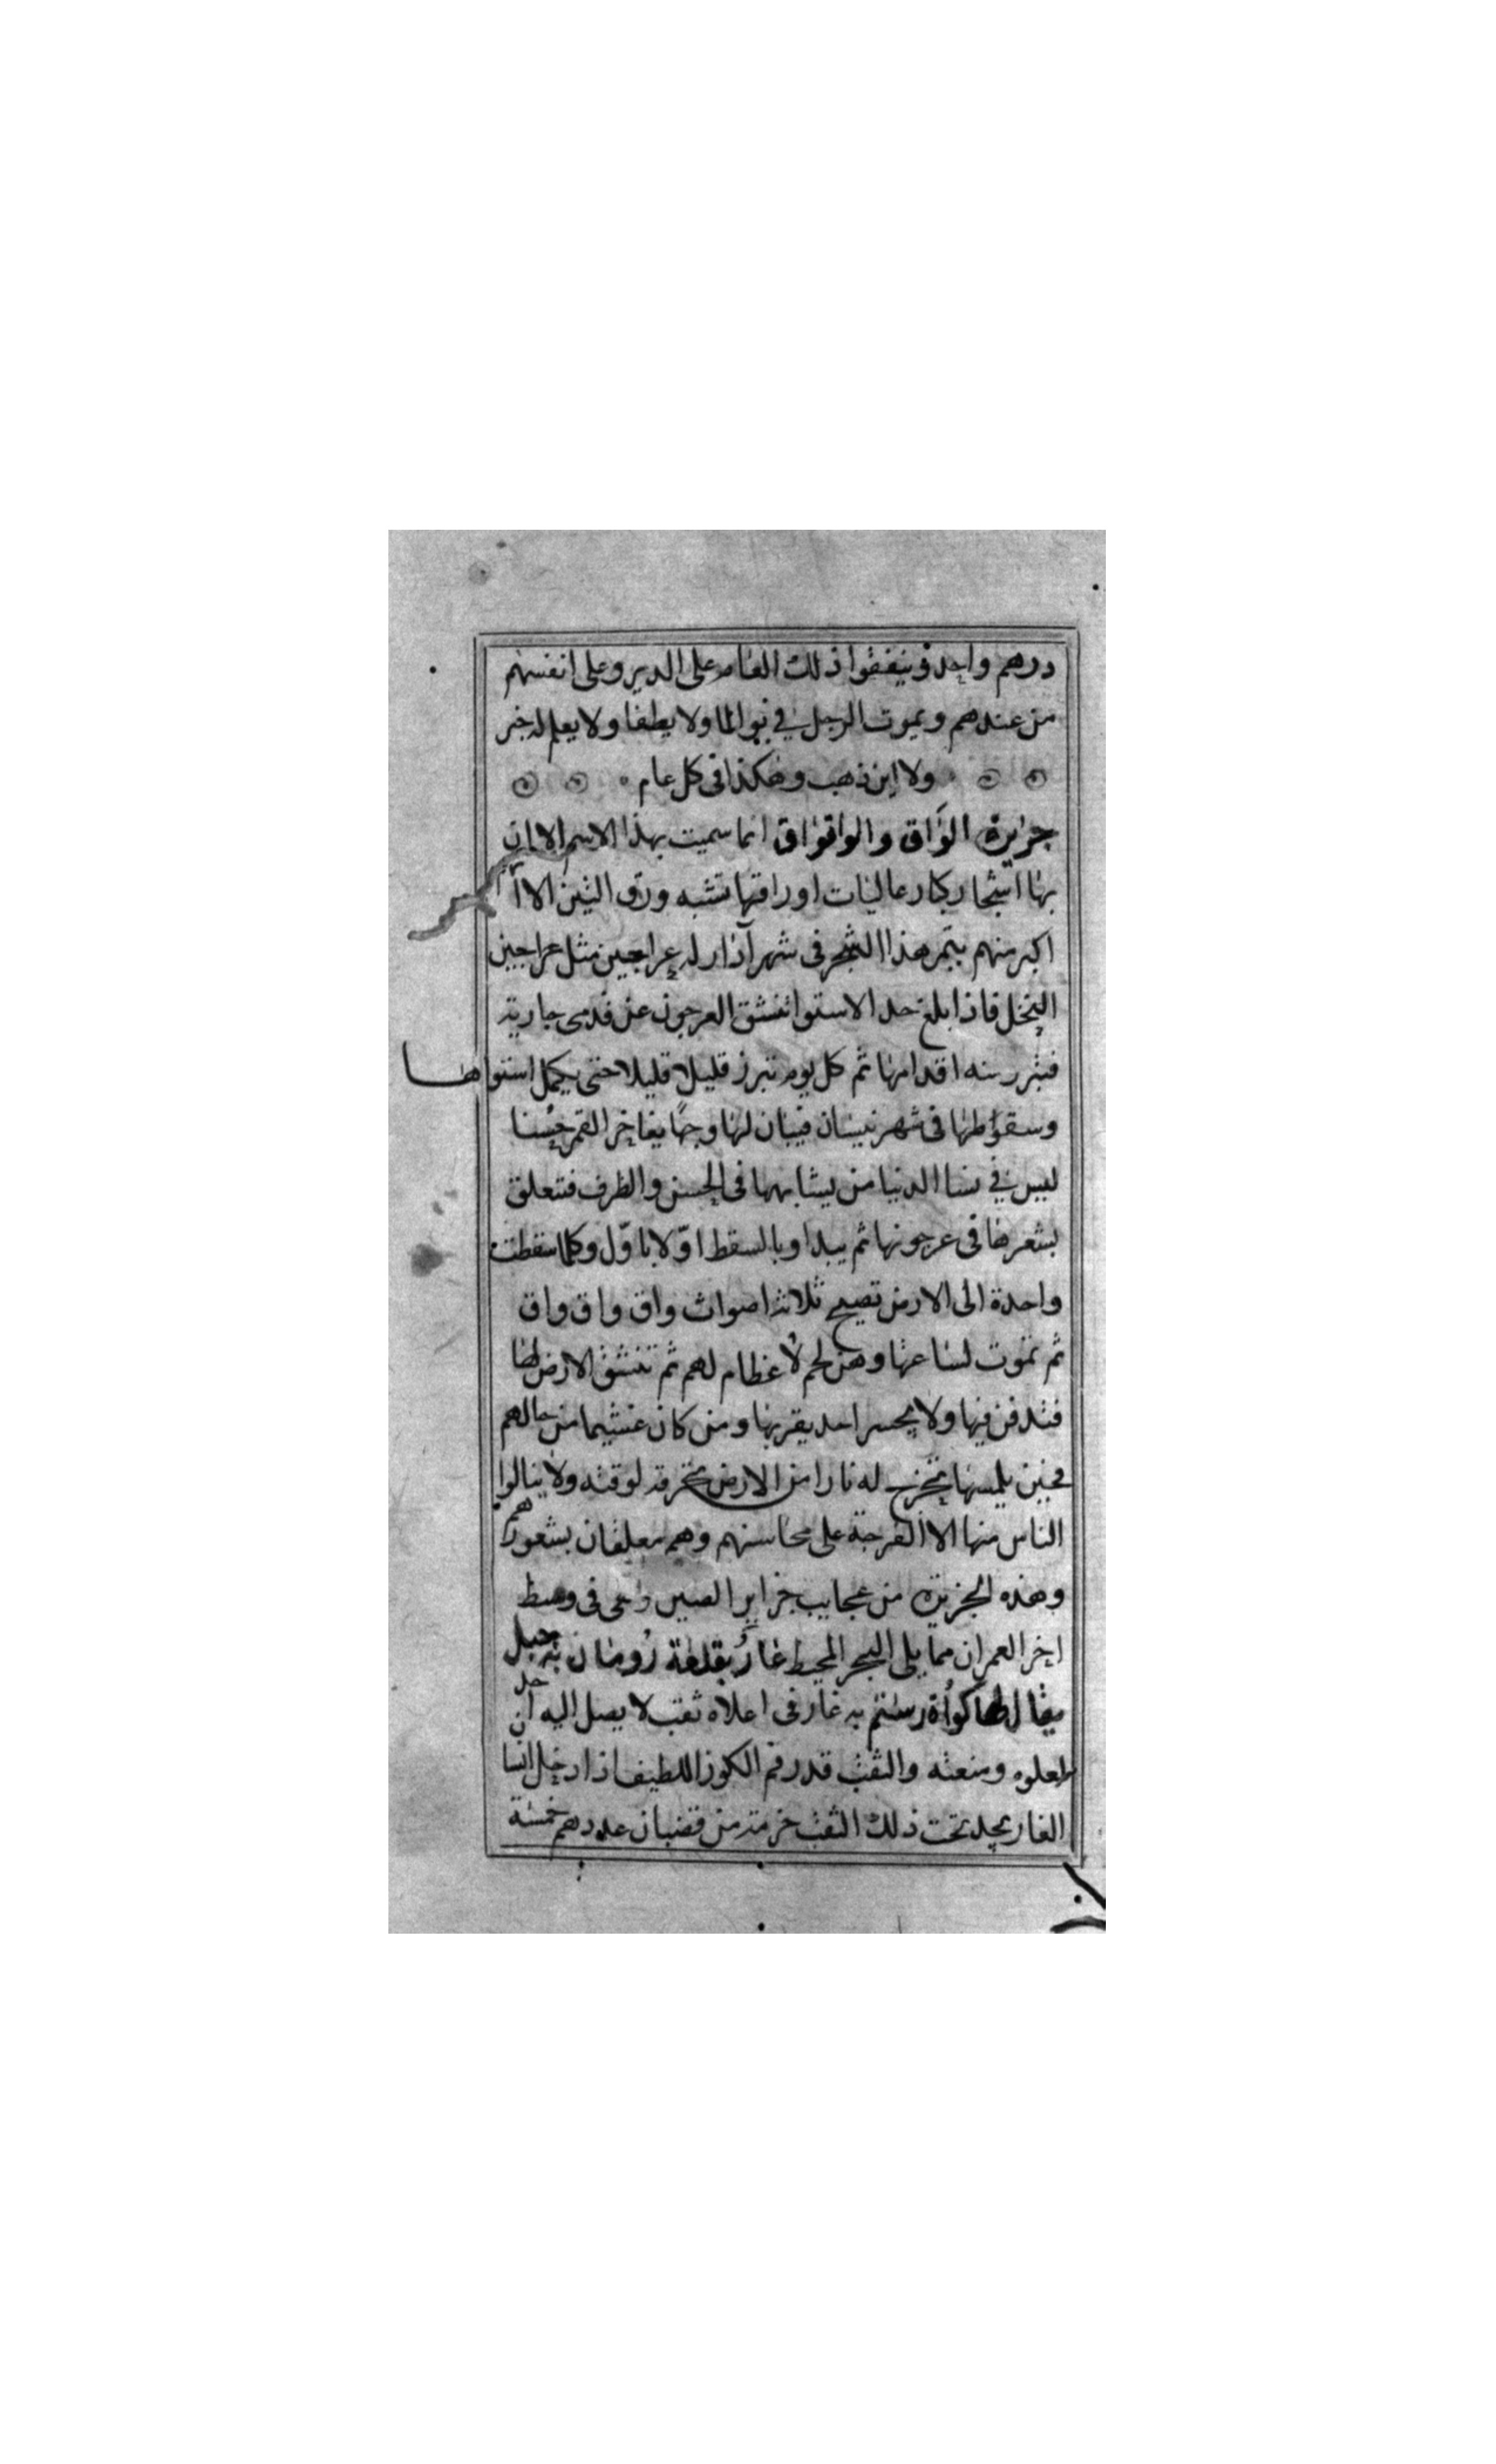 درهم واحد فينفقوا ذلك العام على الدير وعلى انفسهم
من عندهم ويموت الرجل في الما ولا يطفا ولا يعلم له خبر
ولا اين ذهب وهكذا في كل عام
جزيرة الواق والواقواق انما سميت بهذا الاسم الا ان
بها اشجار كبار عاليات اوراقها تشبه ورق التين الا ا
اكبر منهم يتمر هذا الشجر في شهر آذار له عراجين مثل عراجين
النخل فاذا بلغ حد الاستوا تفشق العرجون عن قدمى جارية
فتبرز منه اقدامها ثم كل يوم تبرز قليلا قليلا حتى يكمل استواها
وسقوطها في شهر نيسان فيبان لها وجها يفاخر القمر حسنا
ليس في نسا الدنيا من يشابهها في الحسن والظرف فتتعلق
بشعرها في عرجونها ثم يبداوا بالسقط اولا باول وكلما سقطت
واحدة الى الارض تصيح ثلاثة اصوات واق واق واق
ثم تموت لساعتها وهن لحم لا عظام لهم ثم تنشق الارض لها
فتدفن فيها ولا يجسر احد يقربها ومن كان غشيما من حالهم
فحين يلمسها تخرج له نارا من الارض تحرقه لوقته ولا ينالوا
الناس منها الا الفرجة على محاسنهم وهم معلقان بشعورهم
وهذه الجزيرة من عجايب جزاير الصين وهى في وسط
اخر العمران مما يلى البحر المحيط غار بقلعة رومان به جبل
يقال لها كواة رستم به غار في اعلاه ثقب لا يصل اليه احد
لعلوه ومنعته والثقب قدر فم الكوز اللطيف اذا دخل انسان
الغار يجد تحت ذلك الثقب حزمة من قضبان عددهم خمسة